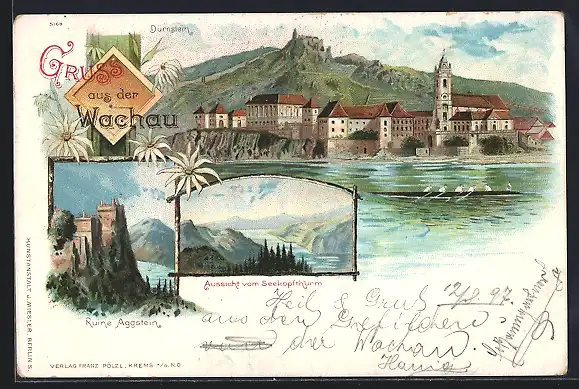 5168
Dürnstein.
Gruss
aus der
Wachau
Aussicht vom Seekopfthurm
Ruine Aggstein.
Heil & Gruß 12/8 97.
aus den
der Wachau
KUNSTANSTALT J. MIESLER, BERLIN S.
VERLAG FRANZ PÖLZL, KREMS a/d. N.Ö.